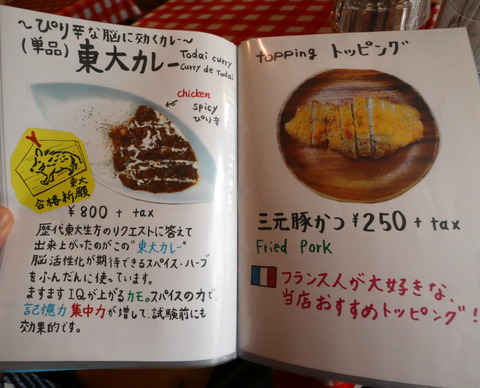 〜ぴり辛な脳に効くカレー〜
(単品) 東大カレー
Todai curry
Curry de Todai
chicken
spicy
ぴり辛
東大
合格祈願
¥800 + tax
歴代東大生方のリクエストに答えて
出来上がったのがこの"東大カレー"
脳活性化が期待できるスパイス・ハーブ
をふんだんに使っています。
ますますIQが上がるカモ。スパイスの力で、
記憶力 集中力が増して、試験前にも
効果的です。
topping トッピング
三元豚かつ ¥250 + tax
Fried Pork
フランス人が大好きな、
当店おすすめトッピング!